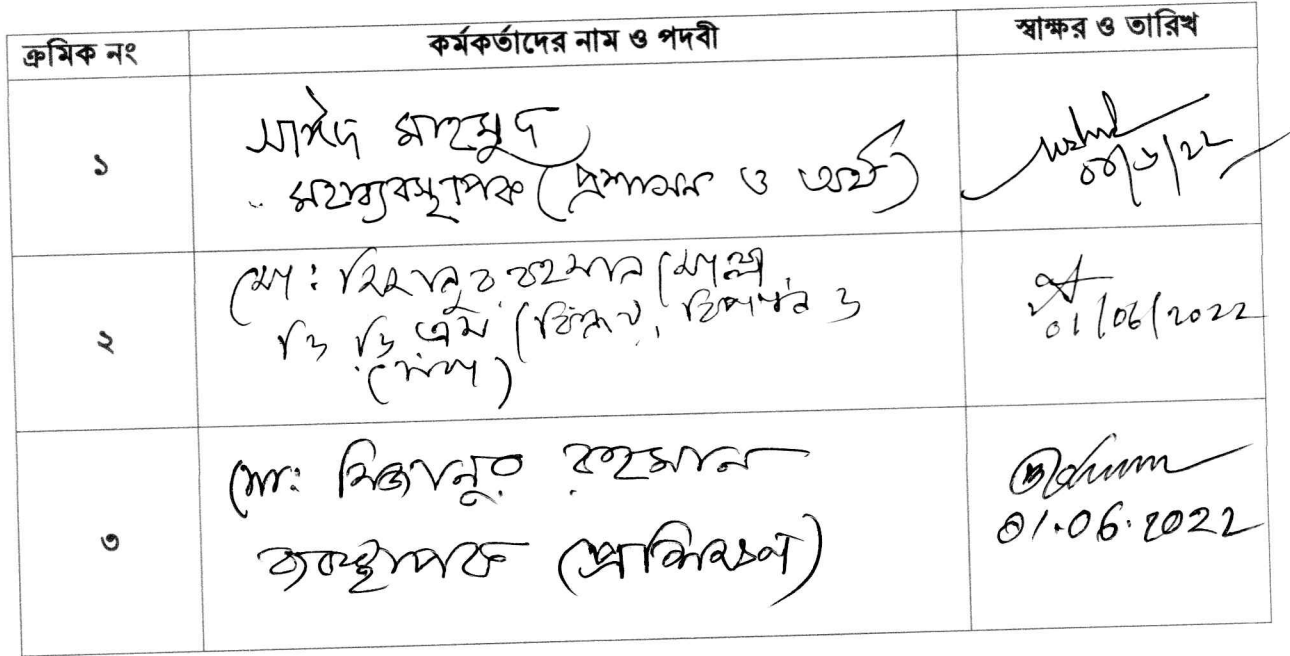 ক্রমিক নং কর্মকর্তাদের নাম ও পদবী স্বাক্ষর ও তারিখ
১
সাঈদ মাহমুদ
মহাব্যবস্থাপক (প্রশাসন ও অর্থ)
২
মো: মিজানুর রহমান মোল্লা
ডি জি এম (বিক্রয়, বিপণন ও
সেবা)
01/06/2022
৩
মো: মিজানুর রহমান
ব্যবস্থাপক (প্রশিক্ষণ)
01.06.2022